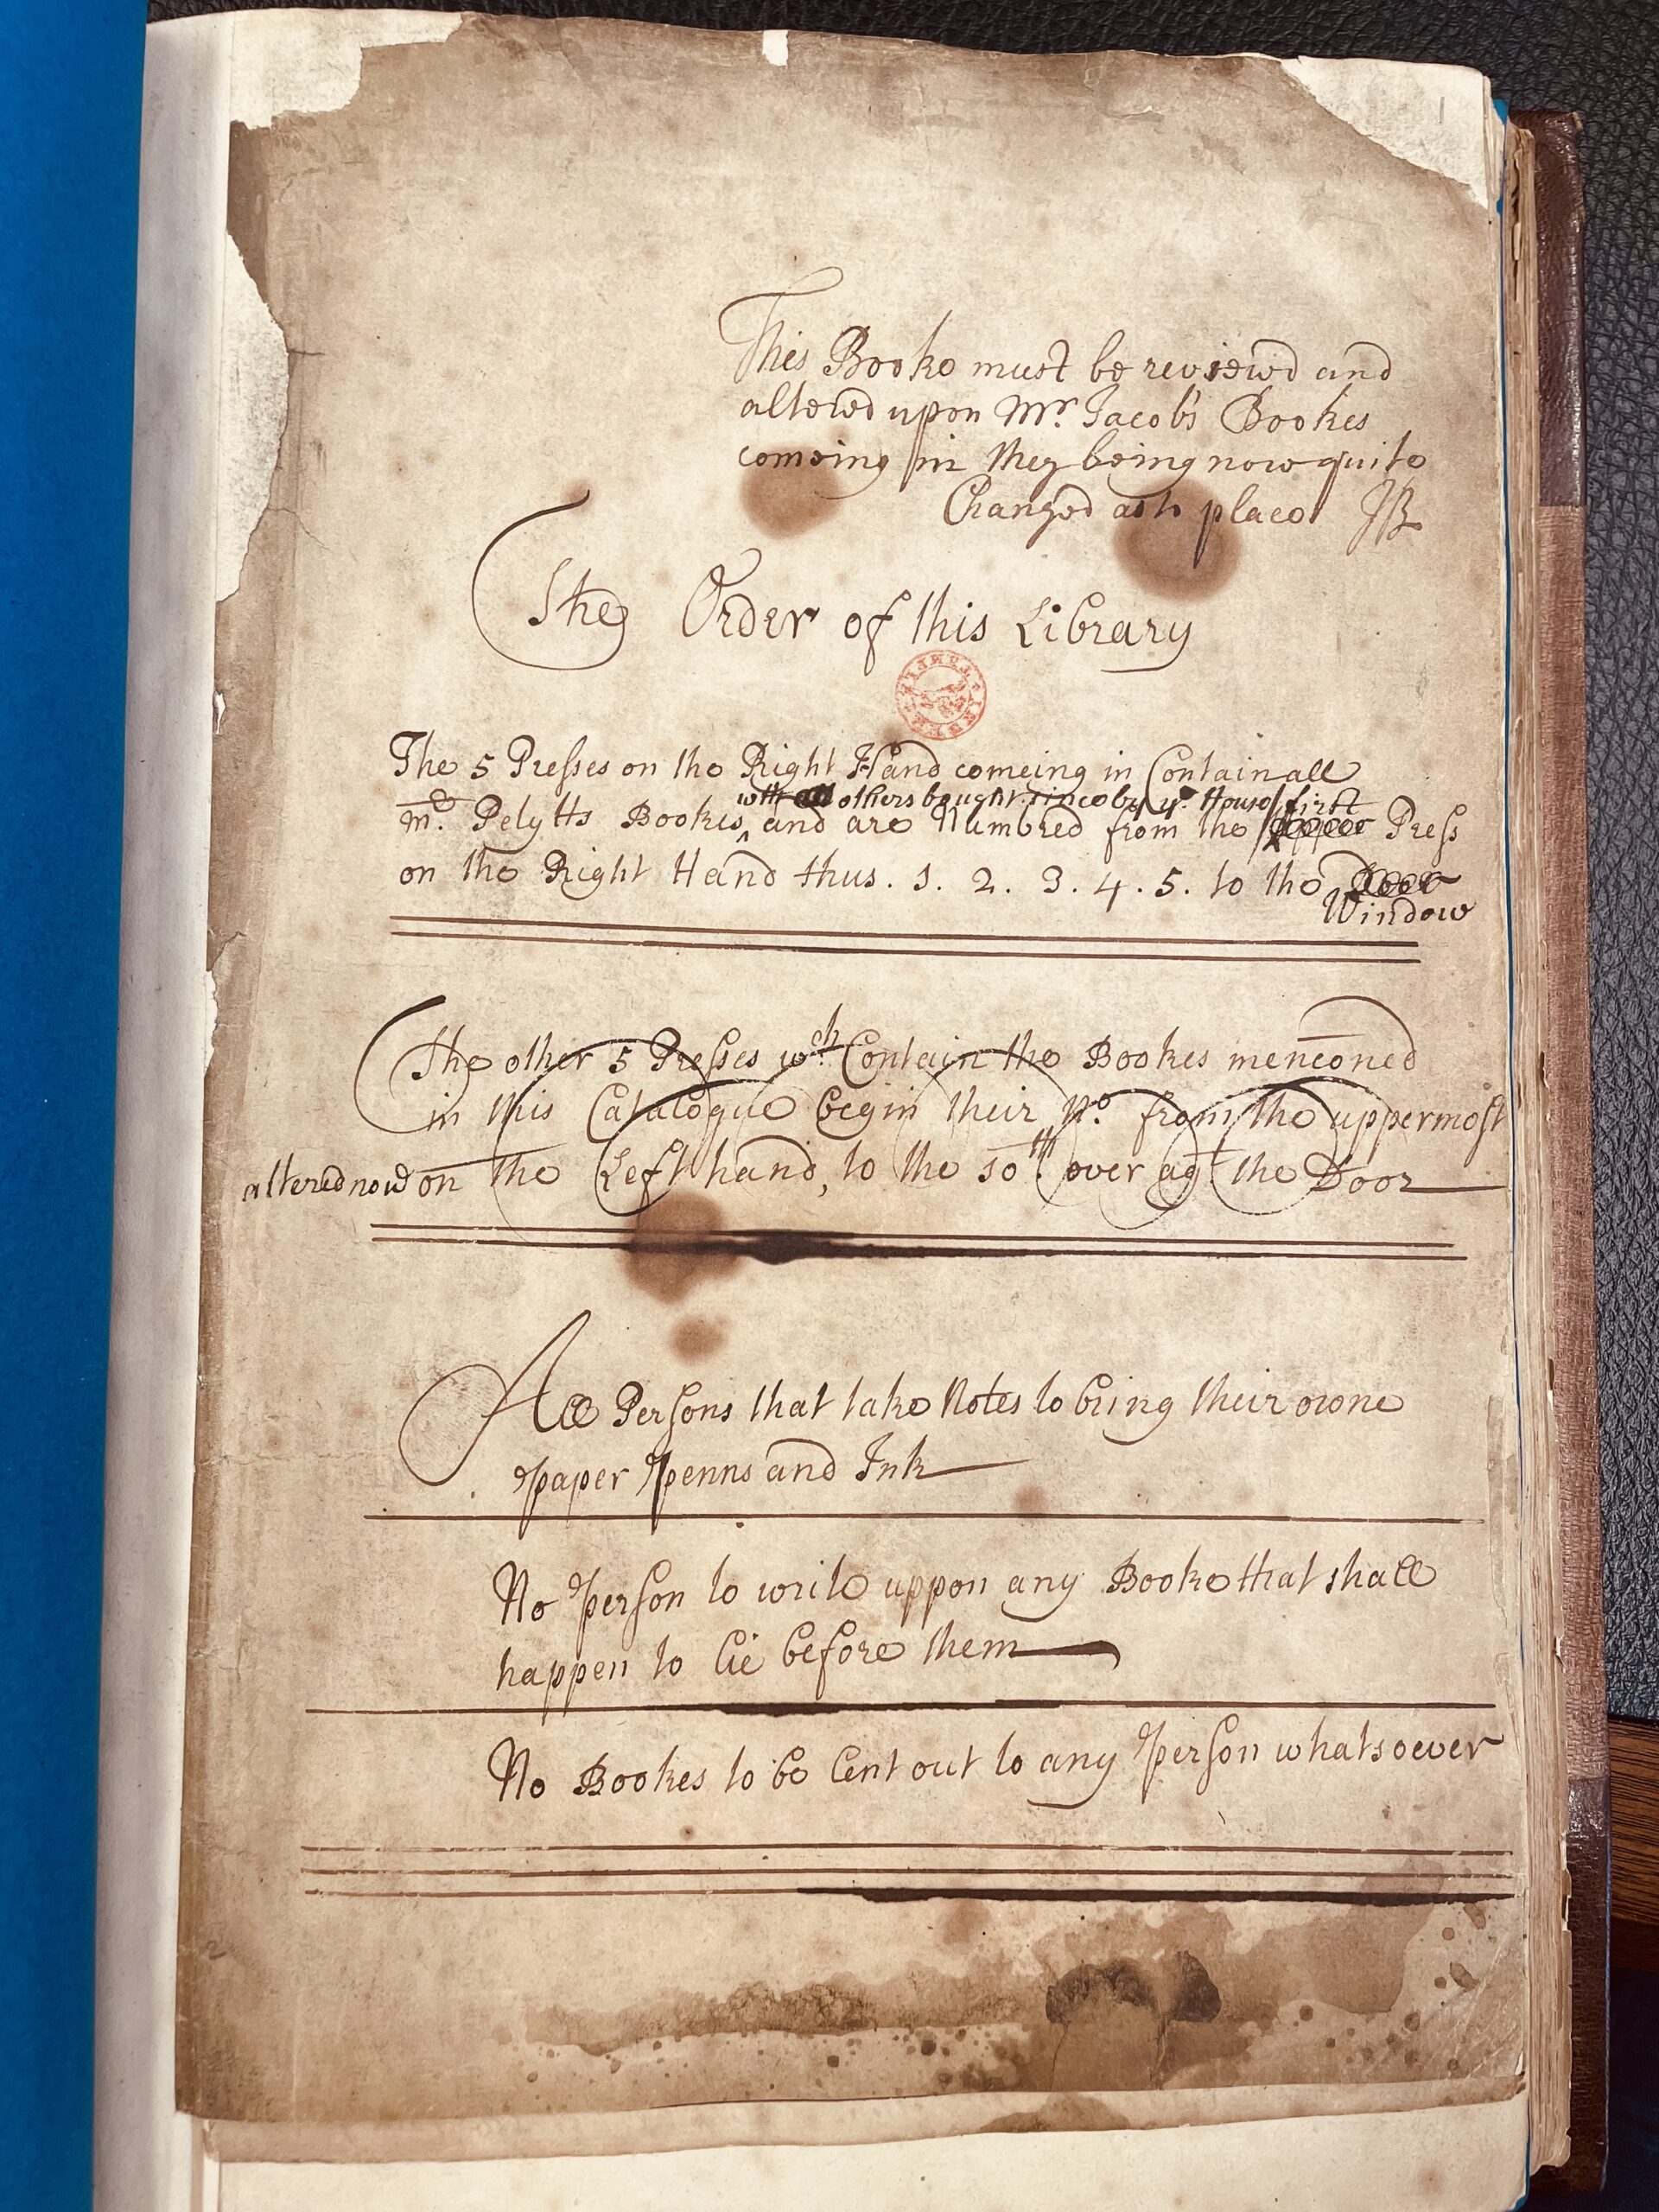 1
This Booke must be reviewd and
alterd upon Mr. Jacob's Bookes
comeing in they being now quite
Changed as to place JB
The Order of this Library
INNER TEMPLE LIBRARY
The 5 Presses on the Right Hand comeing in Contain all
wth all others bought since by ye House first
Mr. Petytts Bookes ^ and are Numbred from the Press
on the Right Hand thus. 1. 2. 3. 4. 5. to the Door
Window
The other 5 Presses wch Contein the Bookes mencōned
in this Catalogue begin their No. from the uppermost
altered now on the Left hand, to the 10th over agt the Door
All Persons that take Notes to bring their owne
paper penns and Ink
No person to write uppon any Booke that shall
happen to lie before them
No Bookes to be lent out to any person whatsoever